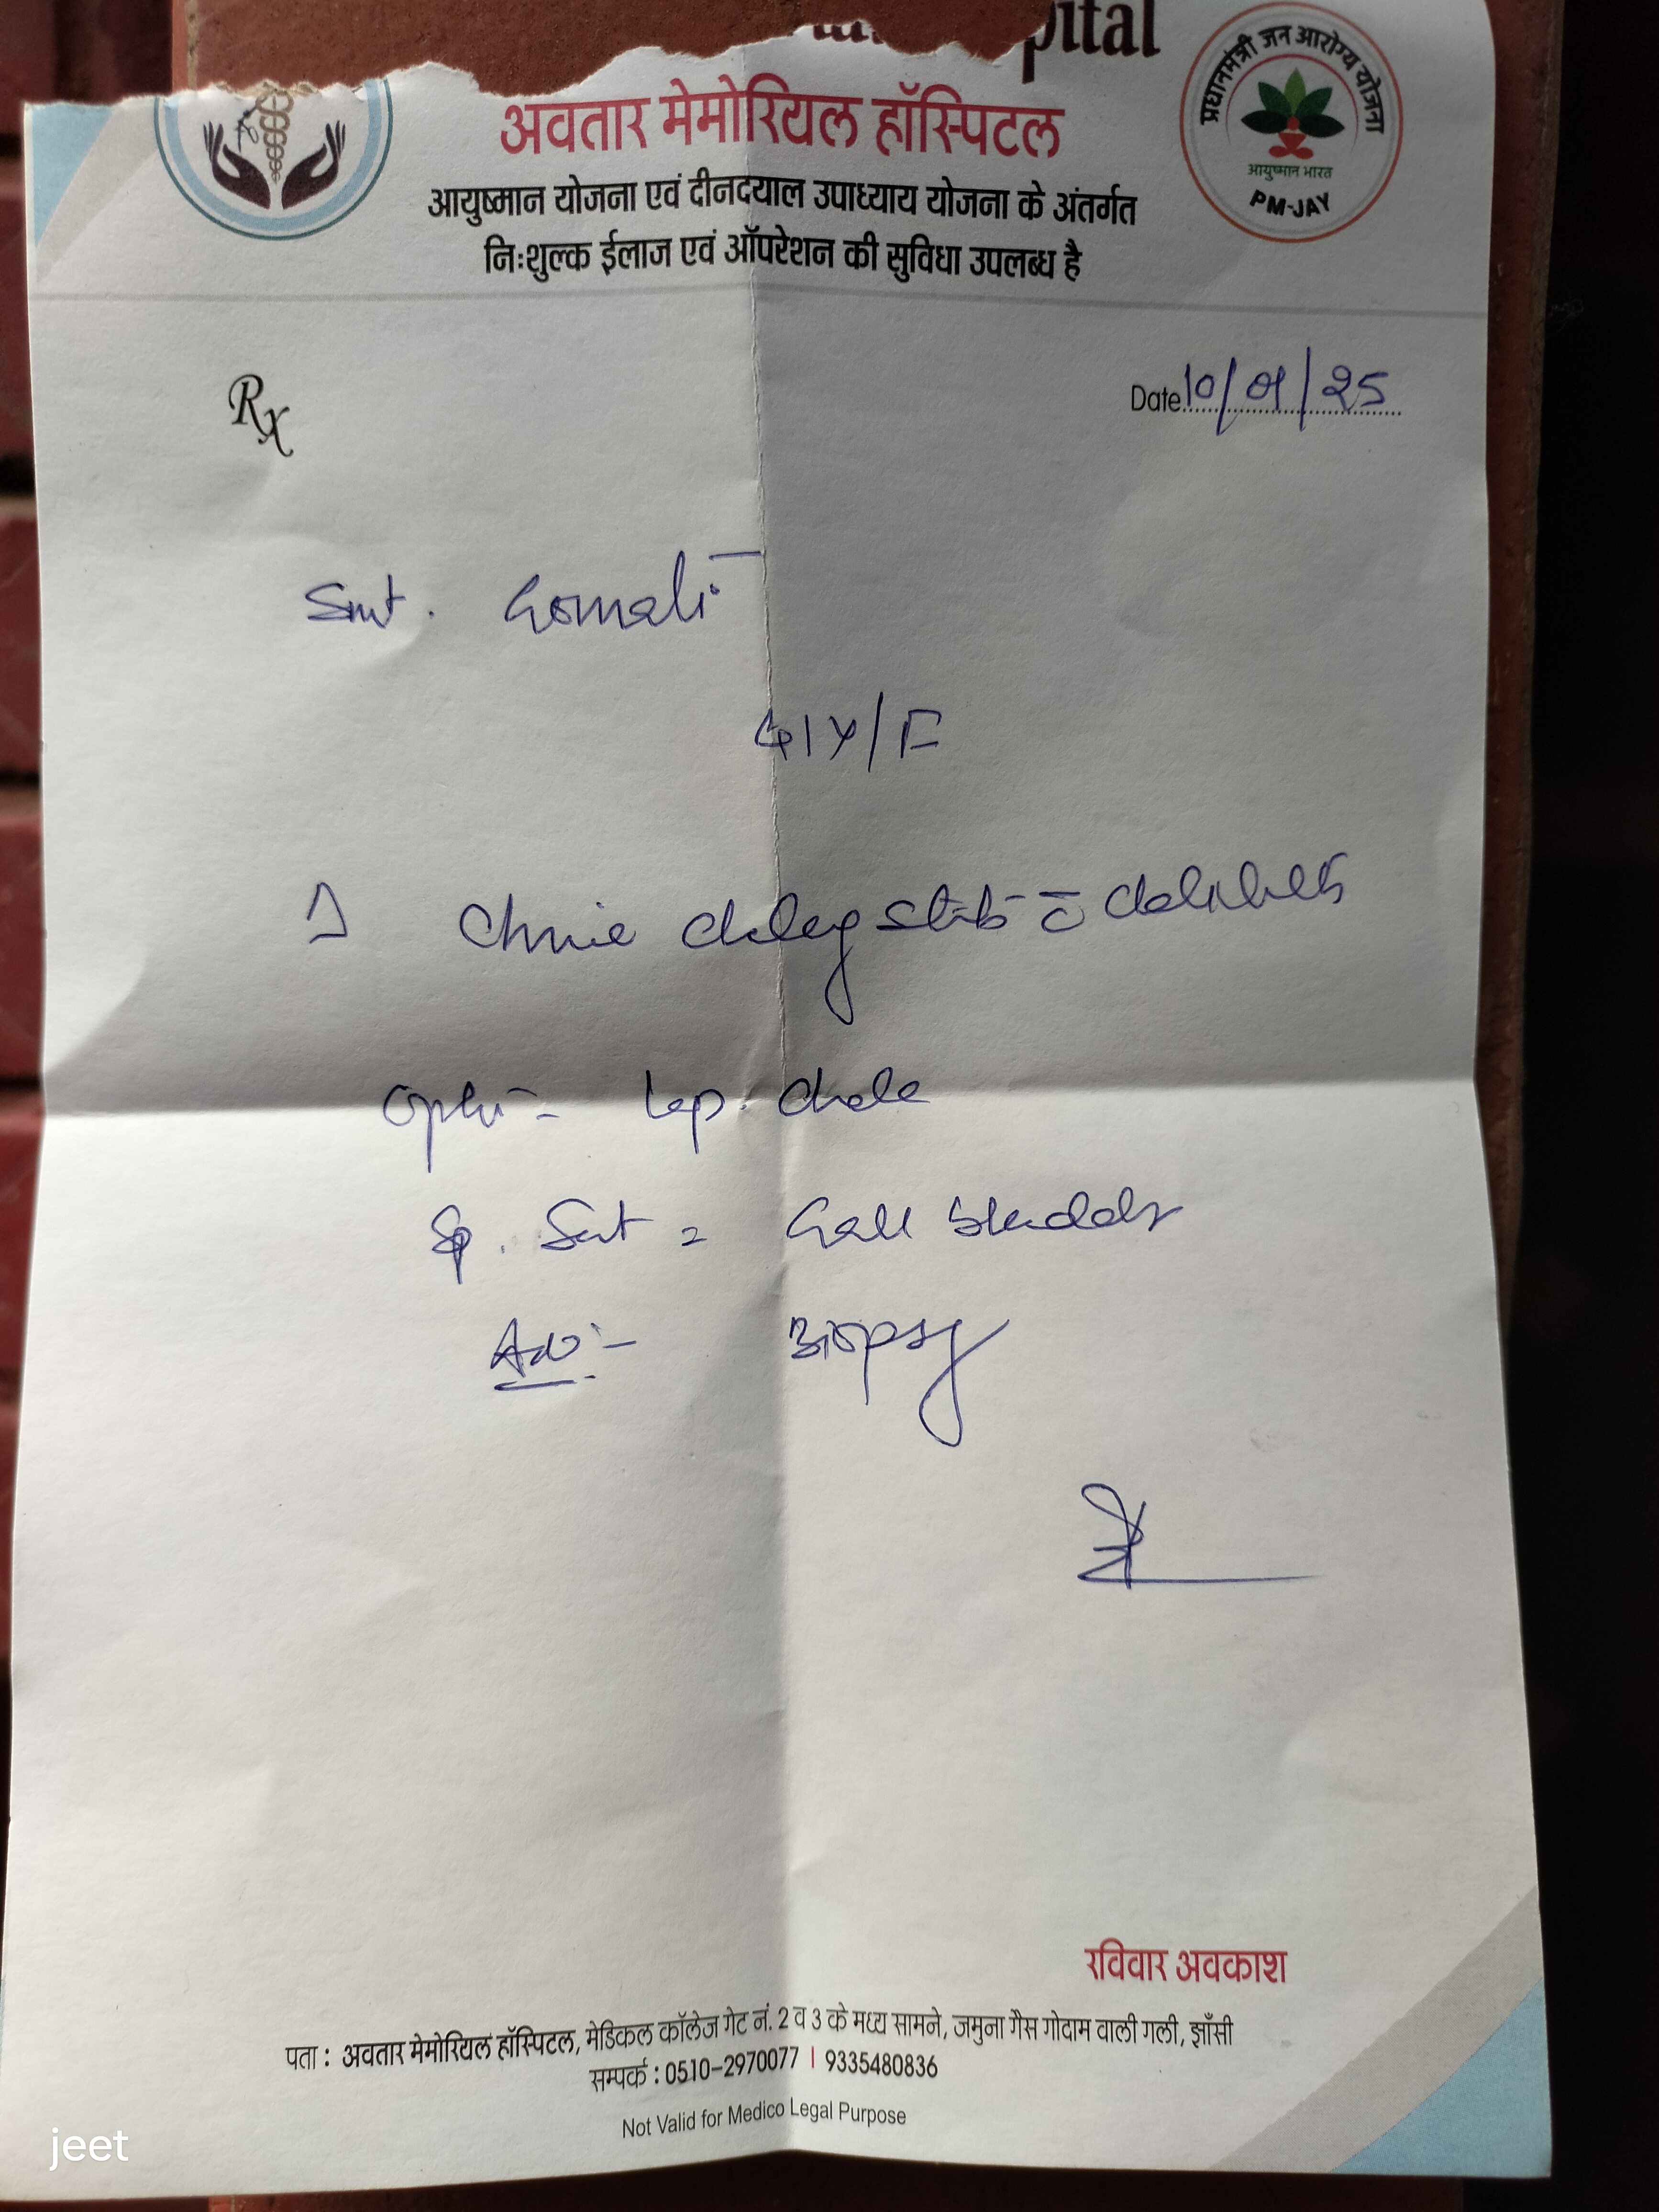 pital
अवतार मेमोरियल हॉस्पिटल
आयुष्मान योजना एवं दीनदयाल उपाध्याय योजना के अंतर्गत
निःशुल्क ईलाज एवं ऑपरेशन की सुविधा उपलब्ध है
प्रधानमंत्री जन आरोग्य योजना
आयुष्मान भारत
PM-JAY
Rx
Date 10/01/25
Smt. Gomati
41Y/F
c
Lap. Chole
Sp. Sent = Gall bladder
Adv:- Biopsy
रविवार अवकाश
पता : अवतार मेमोरियल हॉस्पिटल, मेडिकल कॉलेज गेट नं. 2 व 3 के मध्य सामने, जमुना गैस गोदाम वाली गली, झाँसी
सम्पर्क : 0510-2970077 | 9335480836
Not Valid for Medico Legal Purpose
jeet